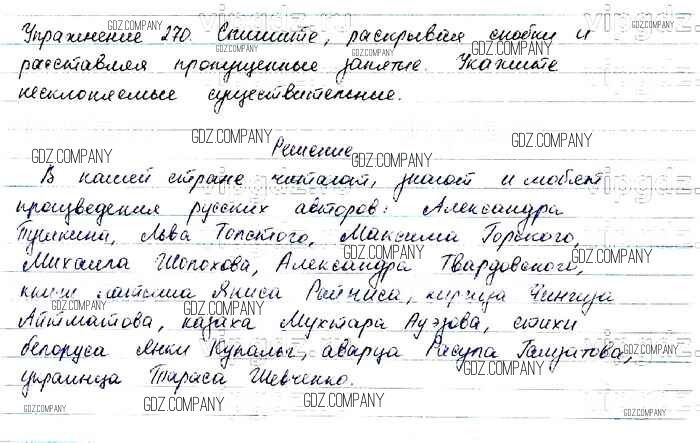 Упражнение 270. Спишите, раскрывая скобки и
расставляя пропущенные запятые. Укажите
несклоняемые существительные.
Решение
В нашей стране читают, знают и любят
произведения русских авторов: Александра
Пушкина, Льва Толстого, Максима Горького,
Михаила Шолохова, Александра Твардовского,
книги латыша Яниса Райниса, киргиза Чингиза
Айтматова, казаха Мухтара Ауэзова, стихи
белоруса Янки Купалы, аварца Расула Гамзатова,
украинца Тараса Шевченко.